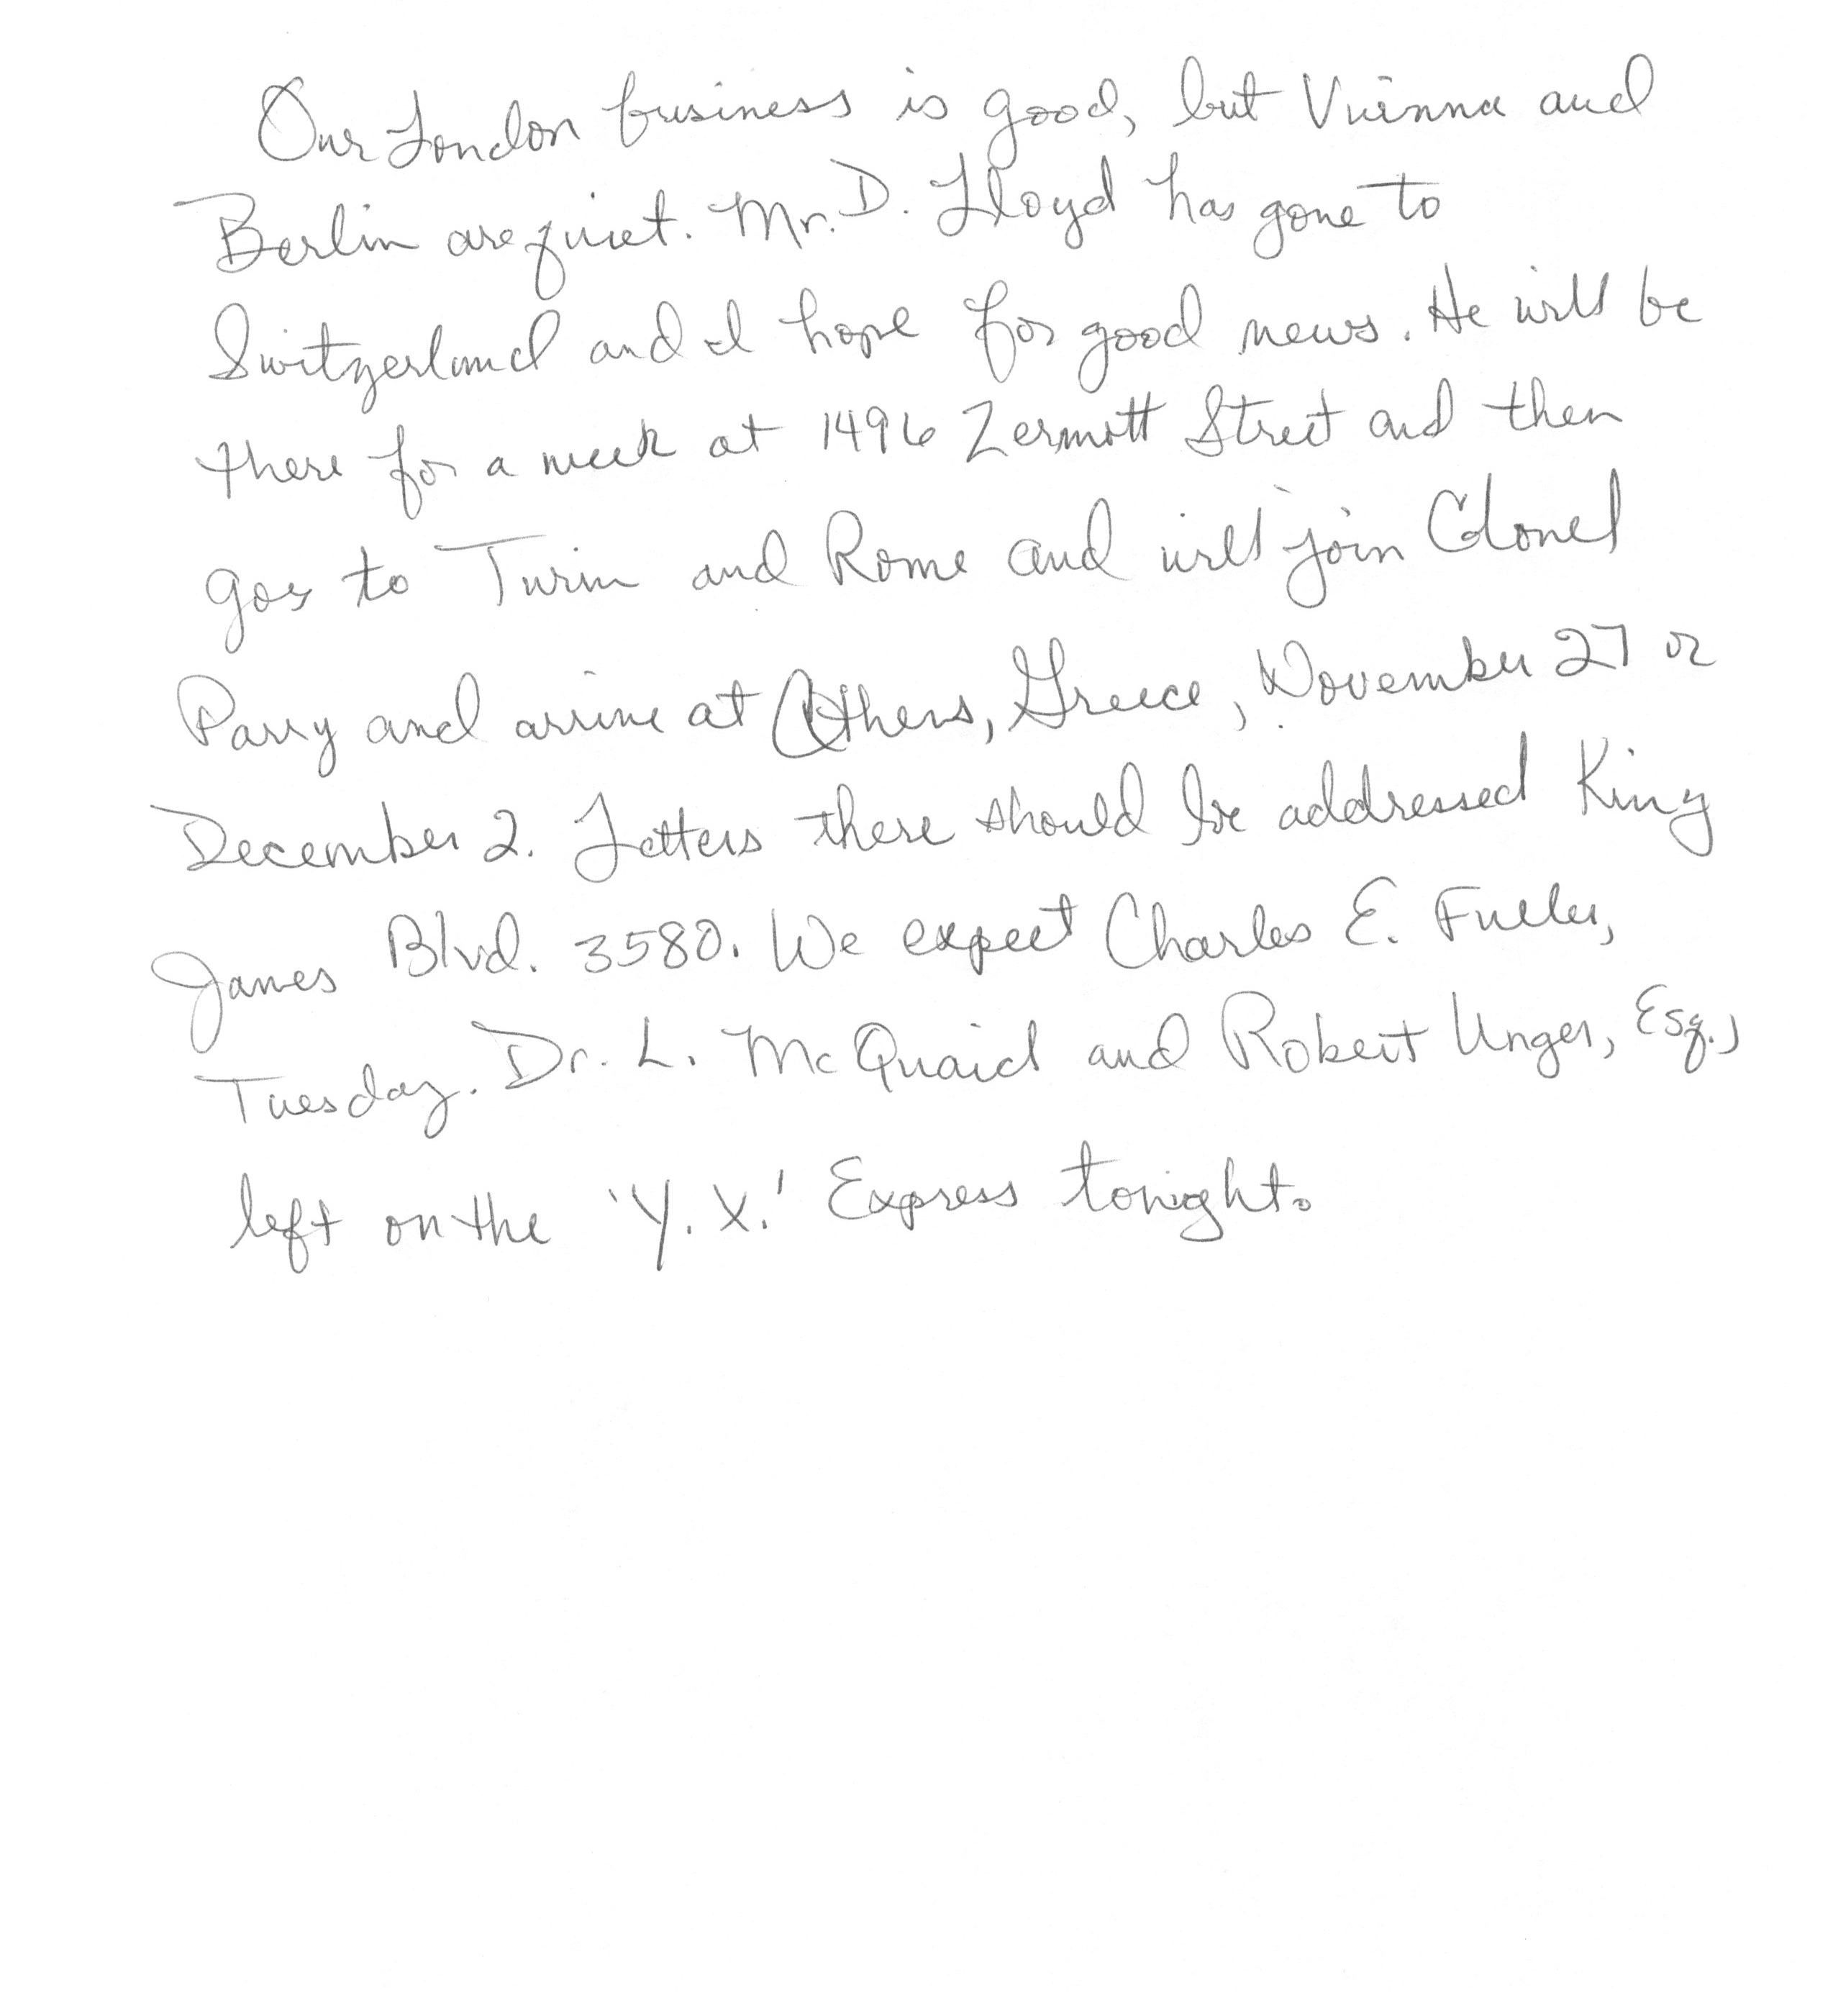 Our London business is good, but Vienna and
Berlin are quiet. Mr. D. Lloyd has gone to
Switzerland and I hope for good news. He will be
there for a week at 1496 Zermott Street and then
goes to Turin and Rome and will join Colonel
Parry and arrive at Athens, Greece, November 27 or
December 2. Letters there should be addressed King
James Blvd. 3580. We expect Charles E. Fuller,
Tuesday. Dr. L. McQuaid and Robert Unger, Esq.,
left on the 'Y.X.' Express tonight.